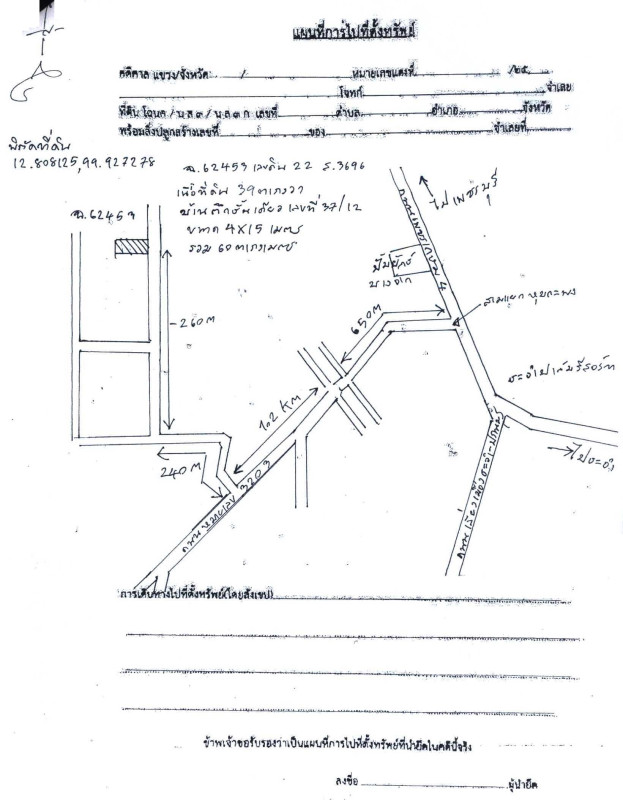 แผนที่การไปที่ตั้งทรัพย์
คดีศาล แขวง/จังหวัด / หมายเลขแดงที่ /๒๕
โจทก์ จำเลย
ที่ดิน โฉนด / น.ส.๓ / น.ส.๓ ก. เลขที่ ตำบล อำเภอ จังหวัด
พร้อมสิ่งปลูกสร้างเลขที่ ของ จำเลยที่
พิกัดที่ดิน
12.808125,99.927278
ฉ.62453 เลขดิน 22 ร.3696
เนื้อที่ดิน 39 ตารางวา
บ้านตึกชั้นเดียว เลขที่ 37/12
ขนาด 4X15 เมตร
รวม 60 ตารางเมตร
ฉ.62453
ไปเพชรบุรี
ถนนเพชรเกษม 4
ปั๊มยักษ์
บางจาก
สามแยกหุบกะพง
260M
650M
1.2 KM
240M
ถนนหมายเลข 3203
ไปชะอำ
ถนนเลี่ยงเมืองชะอำ-ปราณ
การเดินทางไปที่ตั้งทรัพย์(โดยสังเขป)
ข้าพเจ้าขอรับรองว่าเป็นแผนที่การไปที่ตั้งทรัพย์ที่นำยึดในคดีนี้จริง
ลงชื่อ ผู้นำยึด